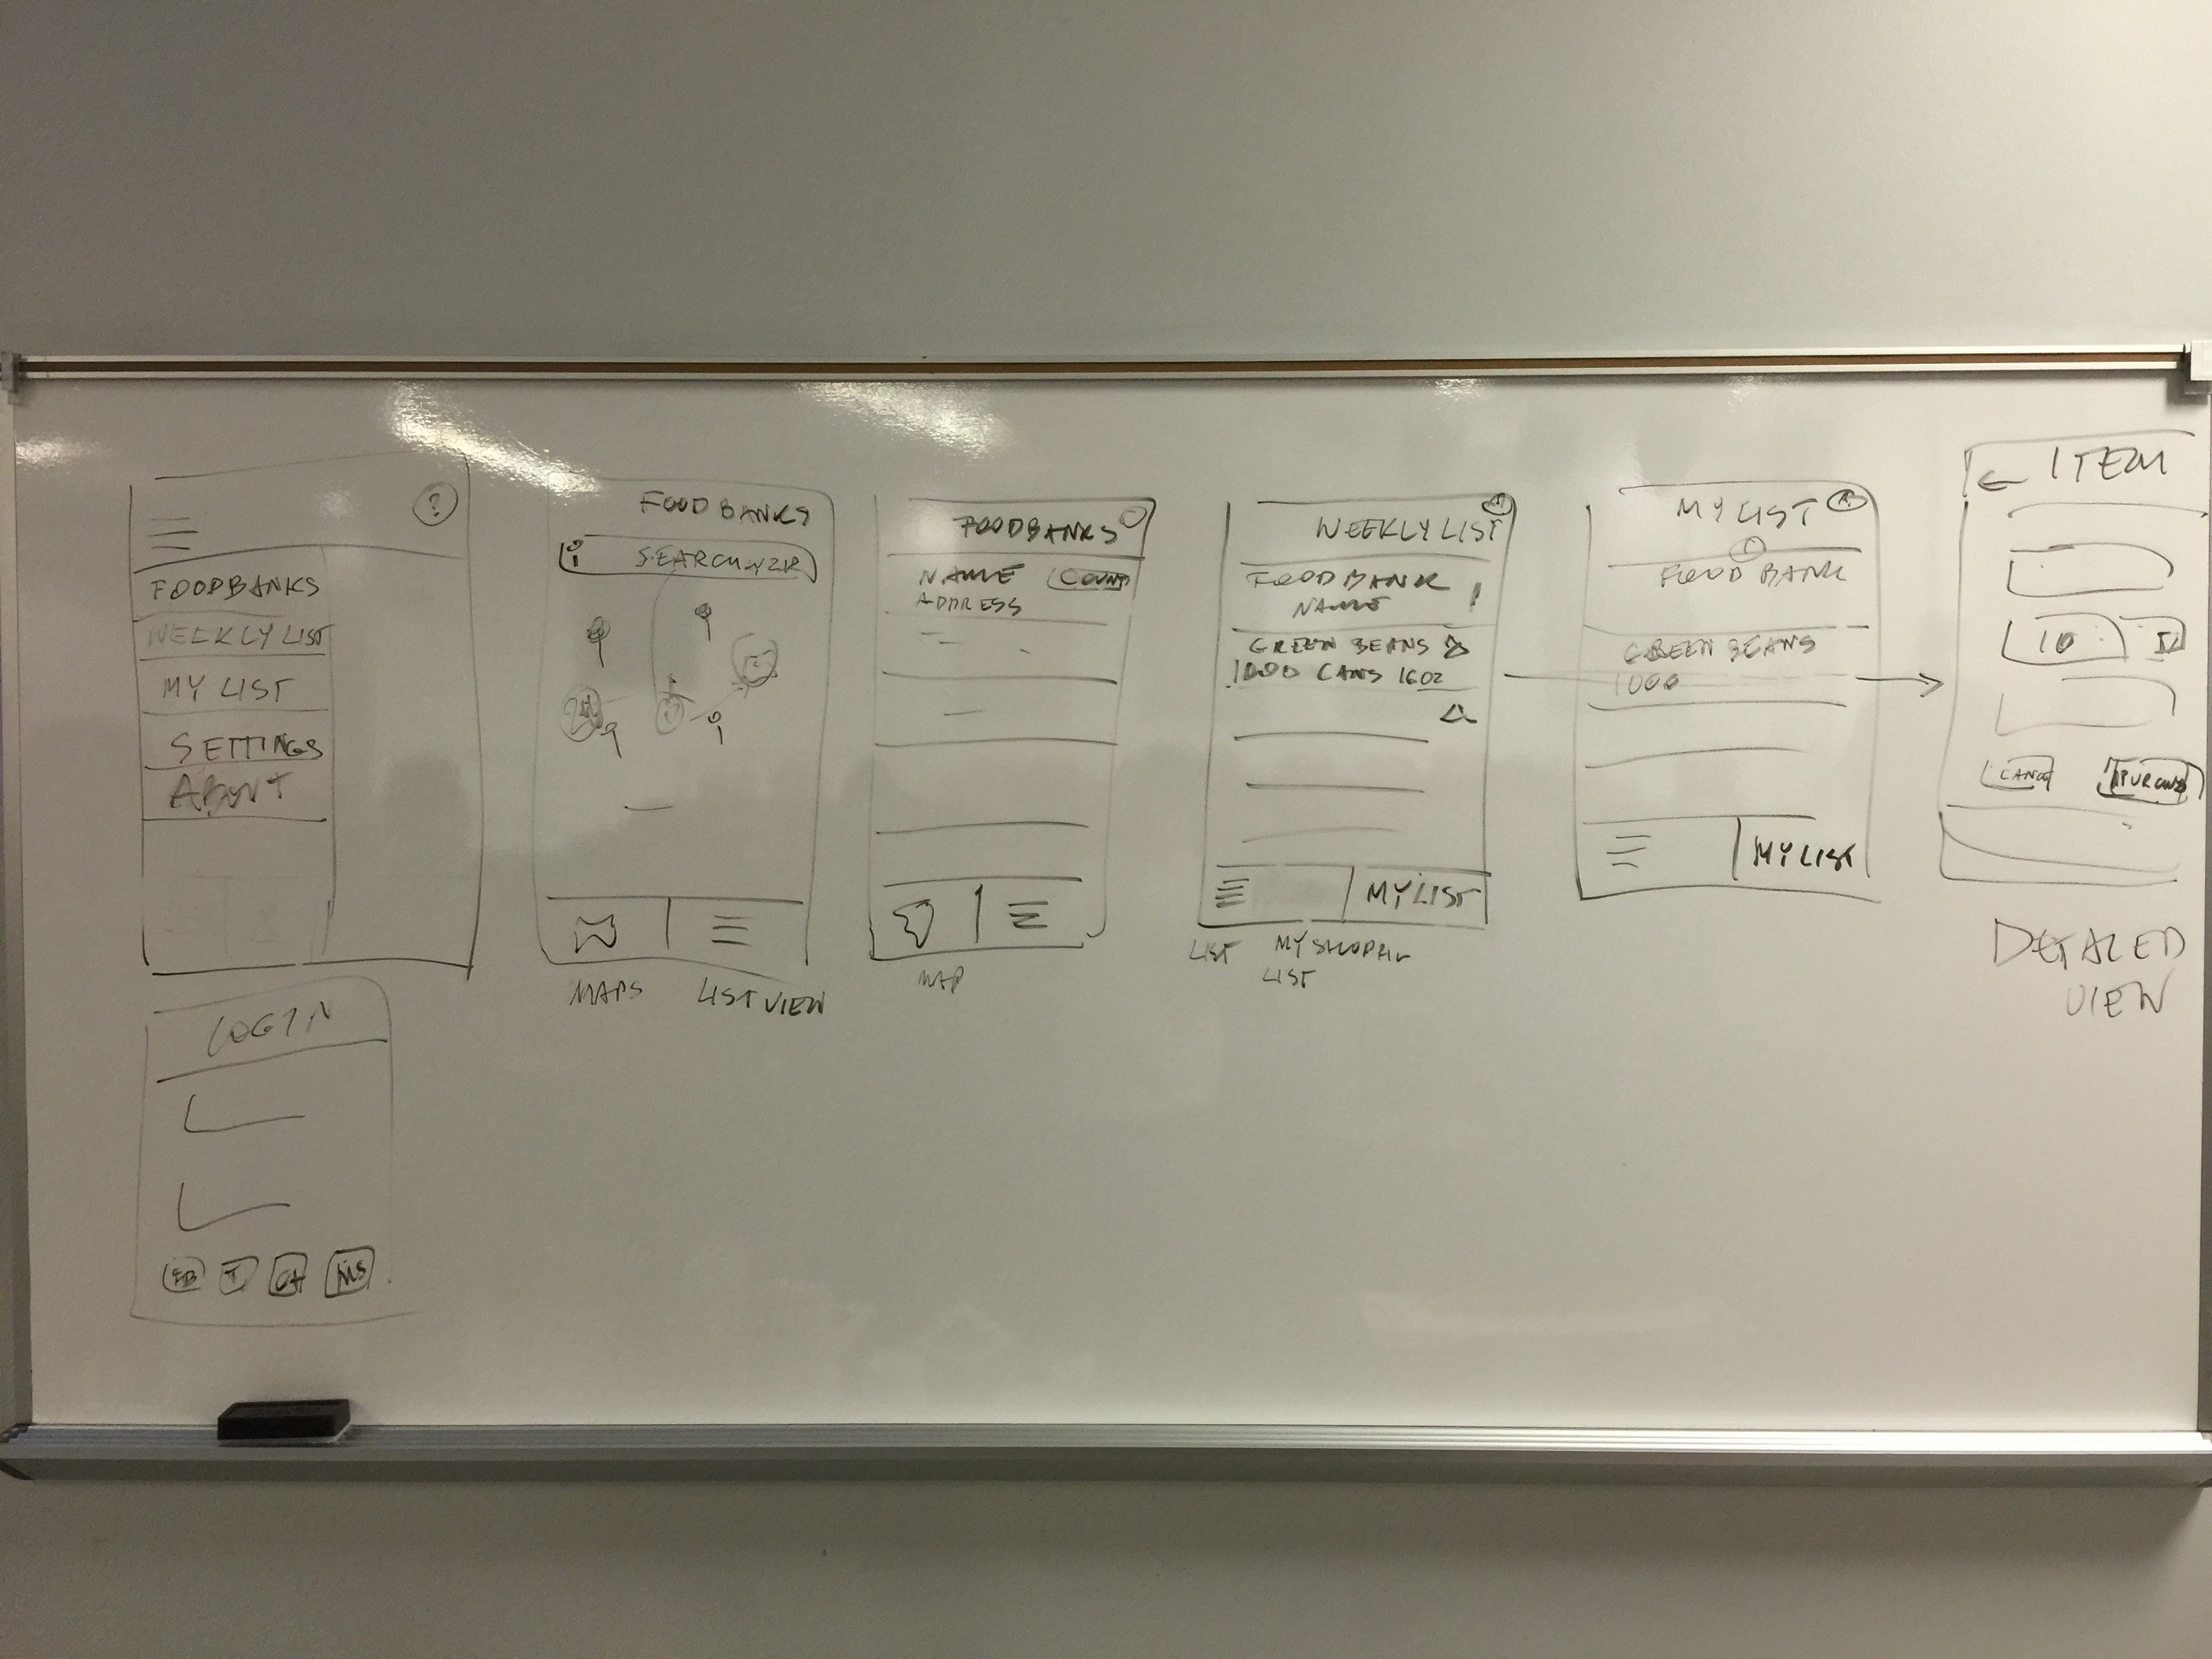 ?
FOODBANKS
WEEKLY LIST
MY LIST
SETTINGS
ABOUT
LOGIN
FB
T
G+
MS
FOOD BANKS
SEARCH
MAPS
LIST VIEW
FOODBANKS
NAME
ADDRESS
MAP
WEEKLY LIST
FOOD BANK
NAME
!
GREEN BEANS
1000 CANS 16OZ
MY LIST
LIST
LIST
MY LIST
FOOD BANK
GREEN BEANS
1000
MY LIST
← ITEM
10
DETALED
VIEW